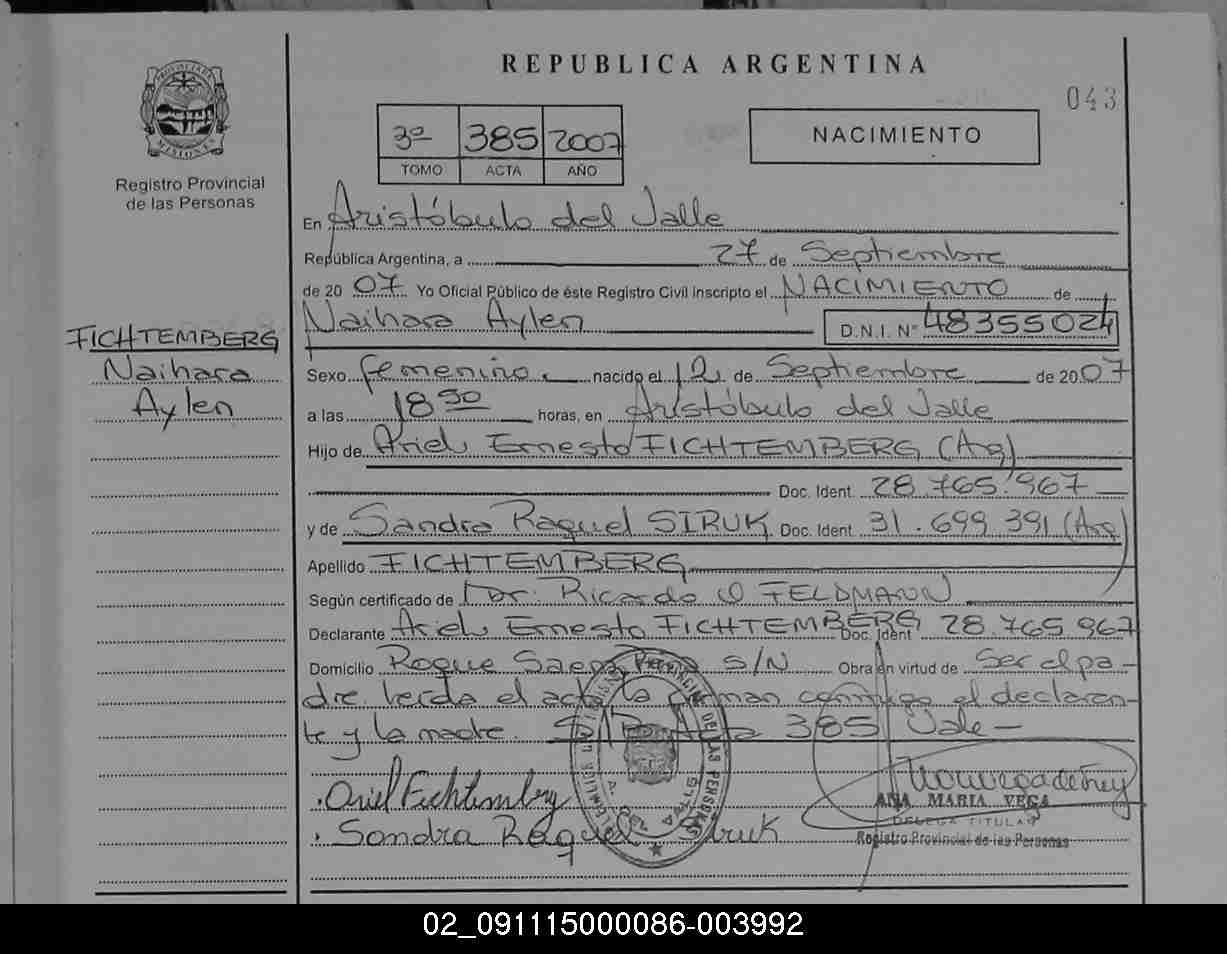 REPUBLICA ARGENTINA
043
PROVINCIA DE
MISIONES
Registro Provincial
de las Personas
3º 385 2007
TOMO ACTA AÑO
NACIMIENTO
En Aristóbulo del Valle
República Argentina, a 27 de Septiembre
de 20 07. Yo Oficial Público de éste Registro Civil inscripto el NACIMIENTO de
Naihara Aylen D.N.I. Nº 48355024
FICHTEMBERG
Naihara
Aylen
Sexo femenino. nacido el 12 de Septiembre de 20 07
a las 18 30 horas, en Aristóbulo del Valle
Hijo de Ariel Ernesto FICHTEMBERG (Arg)
Doc. Ident. 28.765.967
y de Sandra Raquel SIRUK Doc. Ident. 31.699.391 (Arg)
Apellido FICHTEMBERG
Según certificado de Dr. Ricardo O FELDMANN
Declarante Ariel Ernesto FICHTEMBERG Doc. Ident 28.765.967
Domicilio Roque Saenz Peña S/N Obra en virtud de Ser el pa-
dre. Leída el acta la firman conmigo el declaran-
te y la madre. S/R Acta 385 Vale-
Ariel Fichtemberg
Sandra Raquel Siruk
ANA MARIA VEGA
DELEGA TITULAR
Registro Provincial de las Personas
02_091115000086-003992